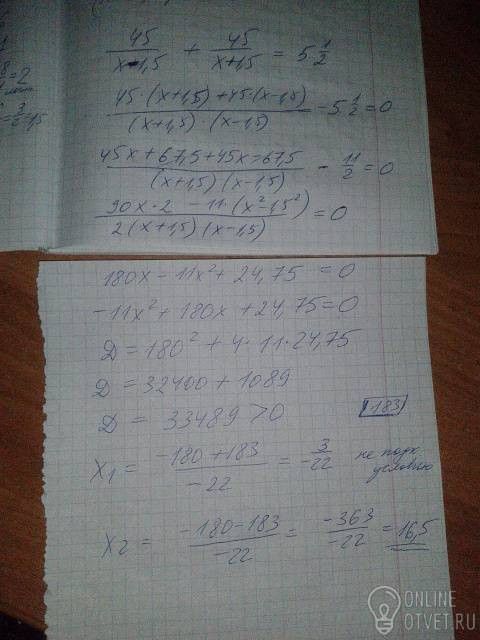 45/(x-1,5) + 45/(x+1,5) = 5 1/2
(45·(x+1,5)+45·(x-1,5))/((x+1,5)·(x-1,5)) - 5 1/2 = 0
(45x+67,5+45x-67,5)/((x+1,5)(x-1,5)) - 11/2 = 0
(90x·2 - 11·(x²-1,5²))/(2(x+1,5)(x-1,5)) = 0
180x - 11x² + 24,75 = 0
-11x² + 180x + 24,75 = 0
Д = 180² + 4·11·24,75
Д = 32400 + 1089
Д = 33489 > 0
183
x1 = (-180+183)/-22 = 3/-22 не подх условию
x2 = (-180-183)/-22 = -363/-22 = 16,5
ONLINE
OTVET.RU